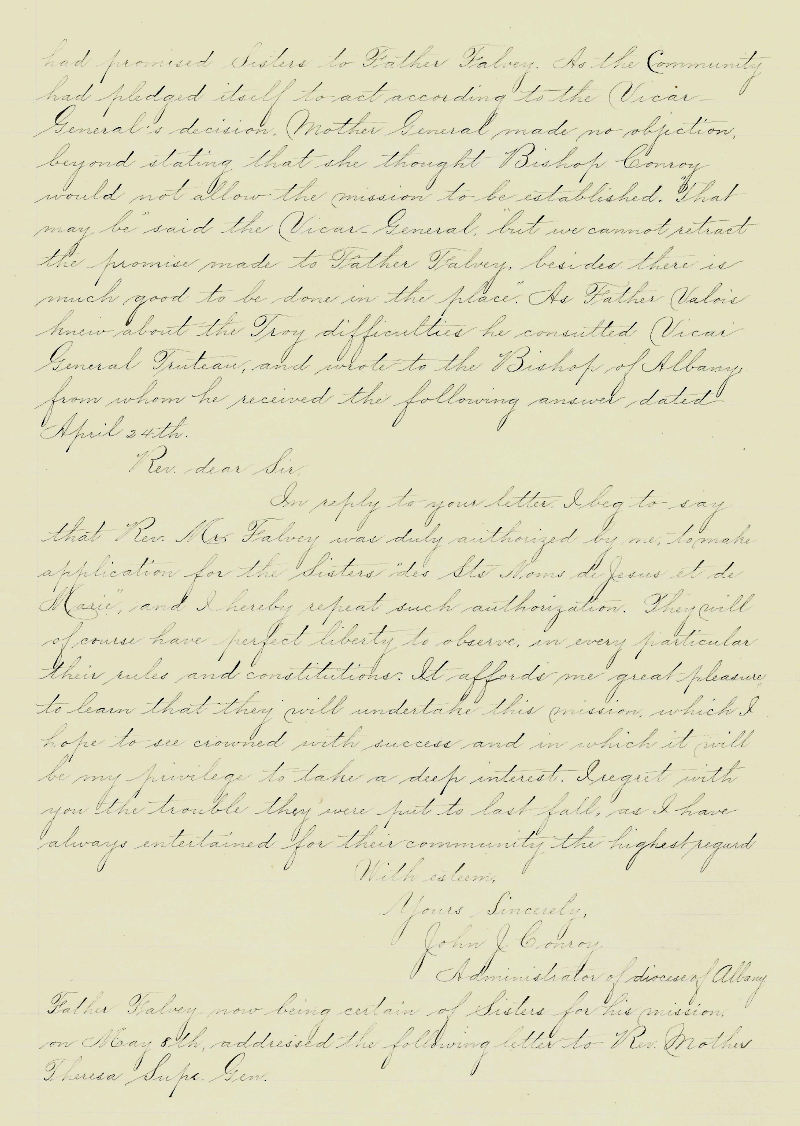 had promised Sisters to Father Falvey. As the Community
had pledged itself to act according to the Vicar-
General's decision, Mother General made no objection,
beyond stating that she thought Bishop Conroy
would not allow the mission to be established. "That
may be" said the Vicar-General, "but we cannot retract
the promise made to Father Falvey, besides there is
much good to be done in the place". As Father Valois
knew about the Troy difficulties he consulted Vicar
General Truteau, and wrote to the Bishop of Albany,
from whom he received the following answer dated
April 24th.
Rev. dear Sir.
In reply to your letter. I beg to say
that Rev. Mr. Falvey was duly authorized by me, to make
application for the Sisters "des Sts Noms de Jesus et de
Marie", and I hereby repeat such authorization. They will
of course have perfect liberty to observe, in every particular
their rules and constitutions. It affords me great pleasure
to learn that they will undertake this mission, which I
hope to see crowned with success and in which it will
be my privilege to take a deep interest. I regret with
you the trouble they were put to last fall, as I have
always entertained for their community the highest regard
With esteem,
Yours Sincerely,
John J. Conroy
Administrator of diocese of Albany
Father Falvey now being certain of Sisters for his mission,
on May 8th, addressed the following letter to Rev. Mother
Theresa Supr. Gen.